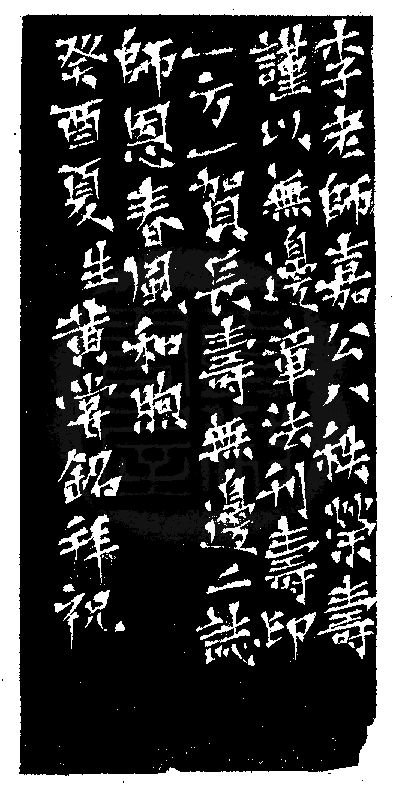 李老師嘉公八秩榮壽
謹以無邊章法刊壽印
一方一賀長壽無邊二誌
師恩春風和煦
癸酉夏生黃嘗銘拜祝